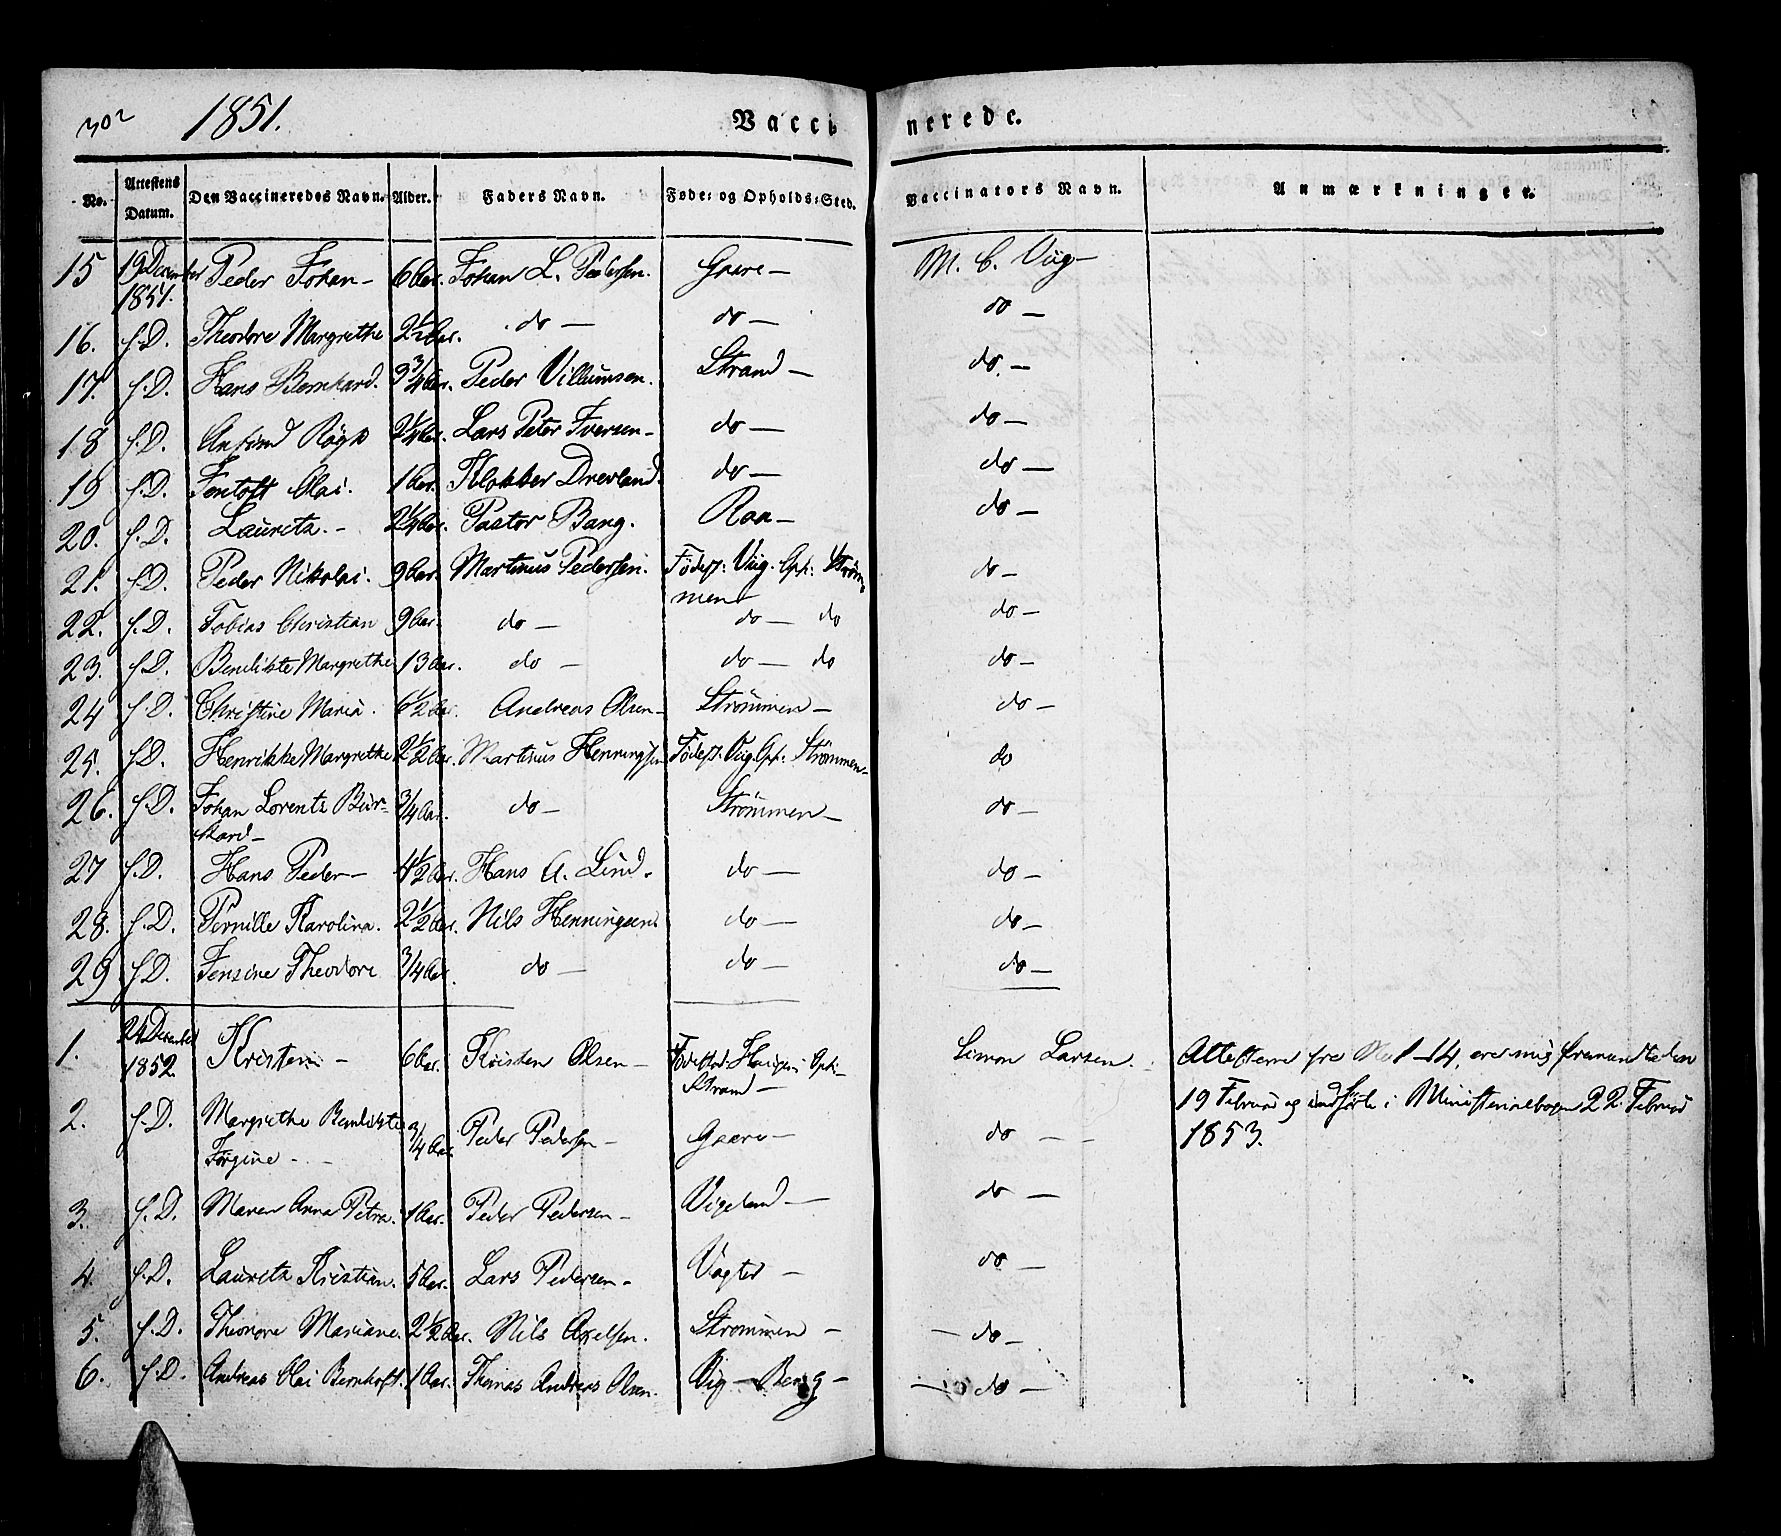 302 1851. Vaccinerede.
No. Attestens Datum. Den Vaccineredes Navn. Alder. Faders Navn. Føde- og Opholds-Sted. Vaccinators Navn. Anmærkninger.
15 19 December 1851. Peder Johan – 6 Aar. Johan L. Pedersen. Gaare – M. C. Viig –
16. s.D. Theodore Margrethe 2½ Aar. do – do – do –
17. s.D. Hans Bernhard. 3¾ Aar. Peder Villumsen. Strand – do –
18 s.D. Anfind Røgh 2¼ Aar. Lars Peter Iversen – do – do –
19 s.D. Jentoft Olai. 1 Aar. Klokker Drevland. do – do –
20. s.D. Lauritz. – 2¼ Aar. Pastor Bang. Raa – do –
21. s.D. Peder Nikolai. 9 Aar. Martinus Pedersen. Fødest: Viig. Oph: Strøm-
men – do –
22. s.D. Tobias Christian 9 Aar. do – do – do do –
23. s.D. Bendikte Margrethe 13 Aar. do – do – do do –
24 s.D. Christine Maria. 6½ Aar. Andreas Olsen – Strømmen – do –
25. s.D. Henrikke Margrethe 2½ Aar. Martinus Henningsen Fødest: Viig. Oph: Strømmen – do
26. s.D. Johan Lorents Bur-
kard – ¾ Aar. do – Strømmen – do –
27 s.D. Hans Peder – 4½ Aar. Hans A. Lind. do – do –
28. s.D. Pernille Karolina. 2½ Aar. Nils Henningsen. do – do –
29 s.D. Jensine Theodore ¾ Aar. do – do – do –
1. 24 December 1852. Kristen – 6 Aar. Kristen Olsen – Oph: Strand – Simon Larsen. Attesterne fra No 1–14, ere mig fremsendte den
2. s.D. Margrethe Bendikte Jørgine – ¾ Aar. Peder Pedersen – Gaare – do – 19 Februar og indførte i Ministerialbogen 22. Februar
1853.
3. s.D. Maren Anna Petra. 1 Aar. Peder Pedersen – Vigeland – do –
4. s.D. Lauritz Kristian. 5 Aar. Lars Pedersen – Vagter – do –
5. s.D. Theodore Mariane. 2½ Aar. Nils Axelsen. Strømmen – – do –
6. s.D. Andreas Olai Bernhoft. 1 Aar. Thomas Andreas Olsen. Viig – Berg – – do –